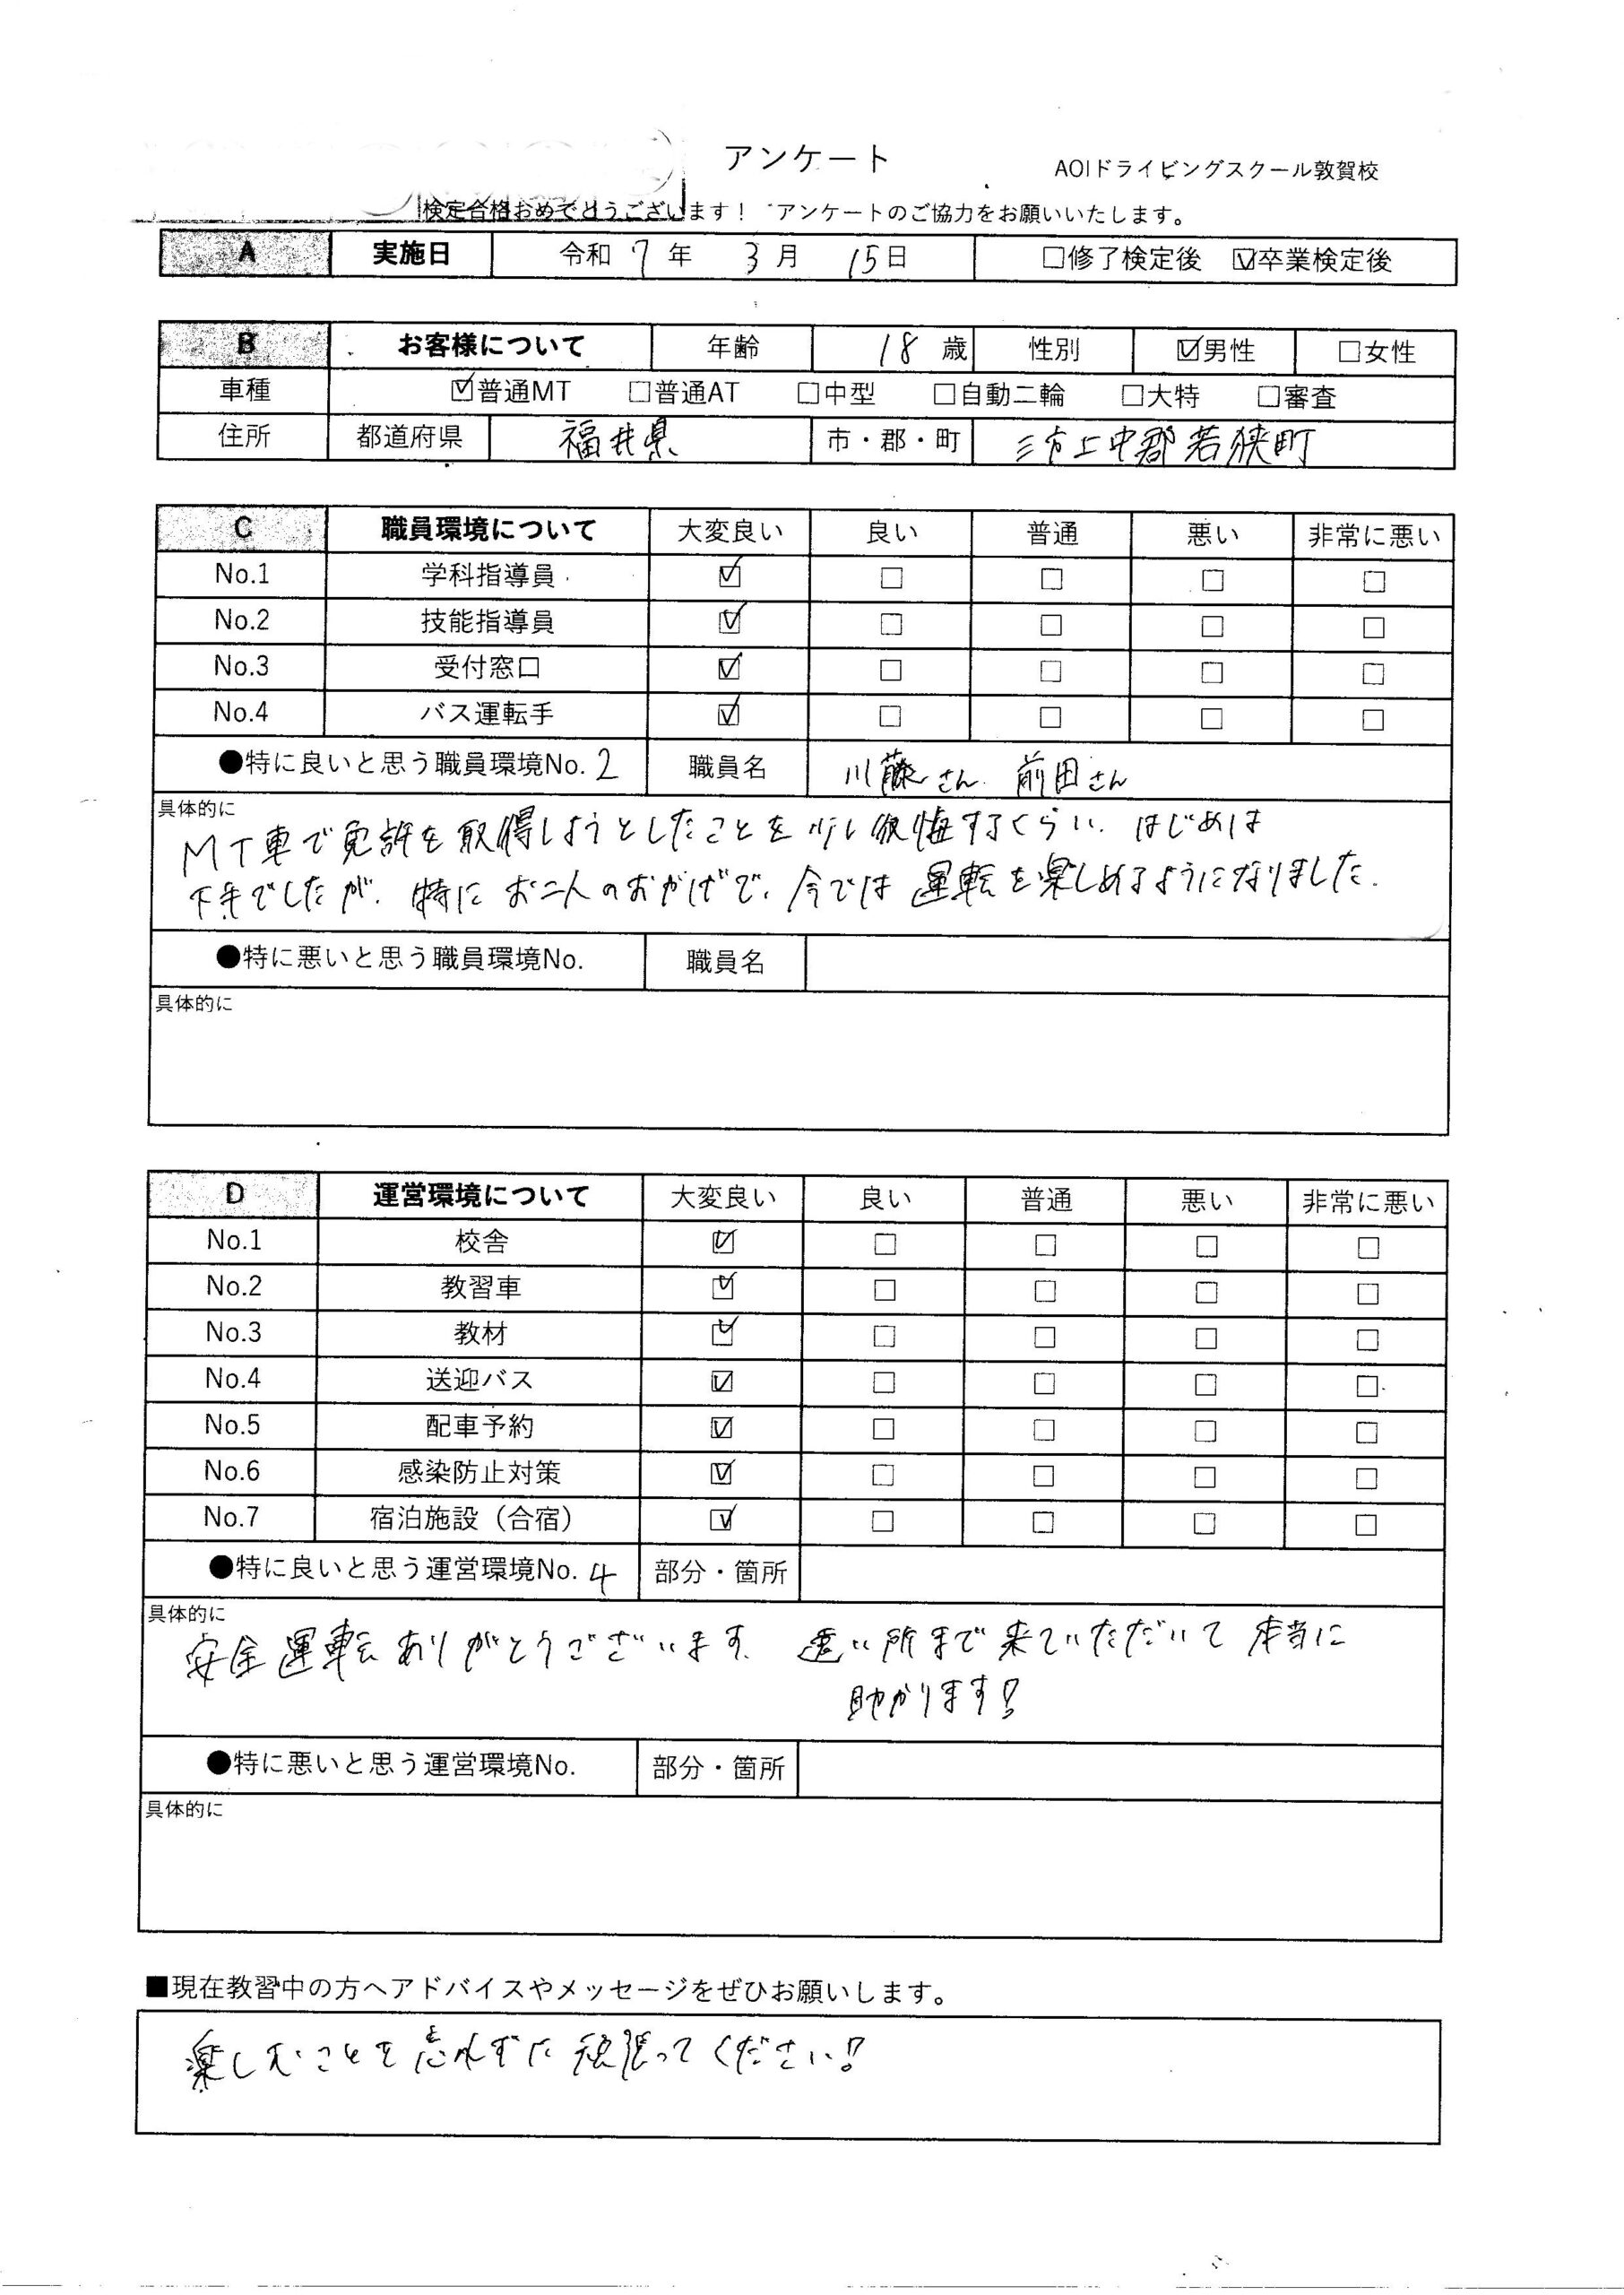 アンケート
AOIドライビングスクール敦賀校
検定合格おめでとうございます！ アンケートのご協力をお願いいたします。
A 実施日 令和 7 年 3 月 15 日 □修了検定後 ☑卒業検定後
B お客様について 年齢 18 歳 性別 ☑男性 □女性
車種 ☑普通MT □普通AT □中型 □自動二輪 □大特 □審査
住所 都道府県 福井県 市・郡・町 三方上中郡若狭町
C 職員環境について 大変良い 良い 普通 悪い 非常に悪い
No.1 学科指導員 ☑ □ □ □ □
No.2 技能指導員 ☑ □ □ □ □
No.3 受付窓口 ☑ □ □ □ □
No.4 バス運転手 ☑ □ □ □ □
●特に良いと思う職員環境No. 2 職員名 川藤さん 前田さん
具体的に
MT車で免許を取得しようとしたことを少し後悔するくらい、はじめは
下手でしたが、特にお二人のおかげで、今では運転を楽しめるようになりました。
●特に悪いと思う職員環境No. 職員名
具体的に
D 運営環境について 大変良い 良い 普通 悪い 非常に悪い
No.1 校舎 ☑ □ □ □ □
No.2 教習車 ☑ □ □ □ □
No.3 教材 ☑ □ □ □ □
No.4 送迎バス ☑ □ □ □ □
No.5 配車予約 ☑ □ □ □ □
No.6 感染防止対策 ☑ □ □ □ □
No.7 宿泊施設（合宿） ☑ □ □ □ □
●特に良いと思う運営環境No. 4 部分・箇所
具体的に
安全運転ありがとうございます。遠い所まで来ていただいて本当に
助かります！
●特に悪いと思う運営環境No. 部分・箇所
具体的に
■現在教習中の方へアドバイスやメッセージをぜひお願いします。
楽しむことを忘れずに頑張ってください！